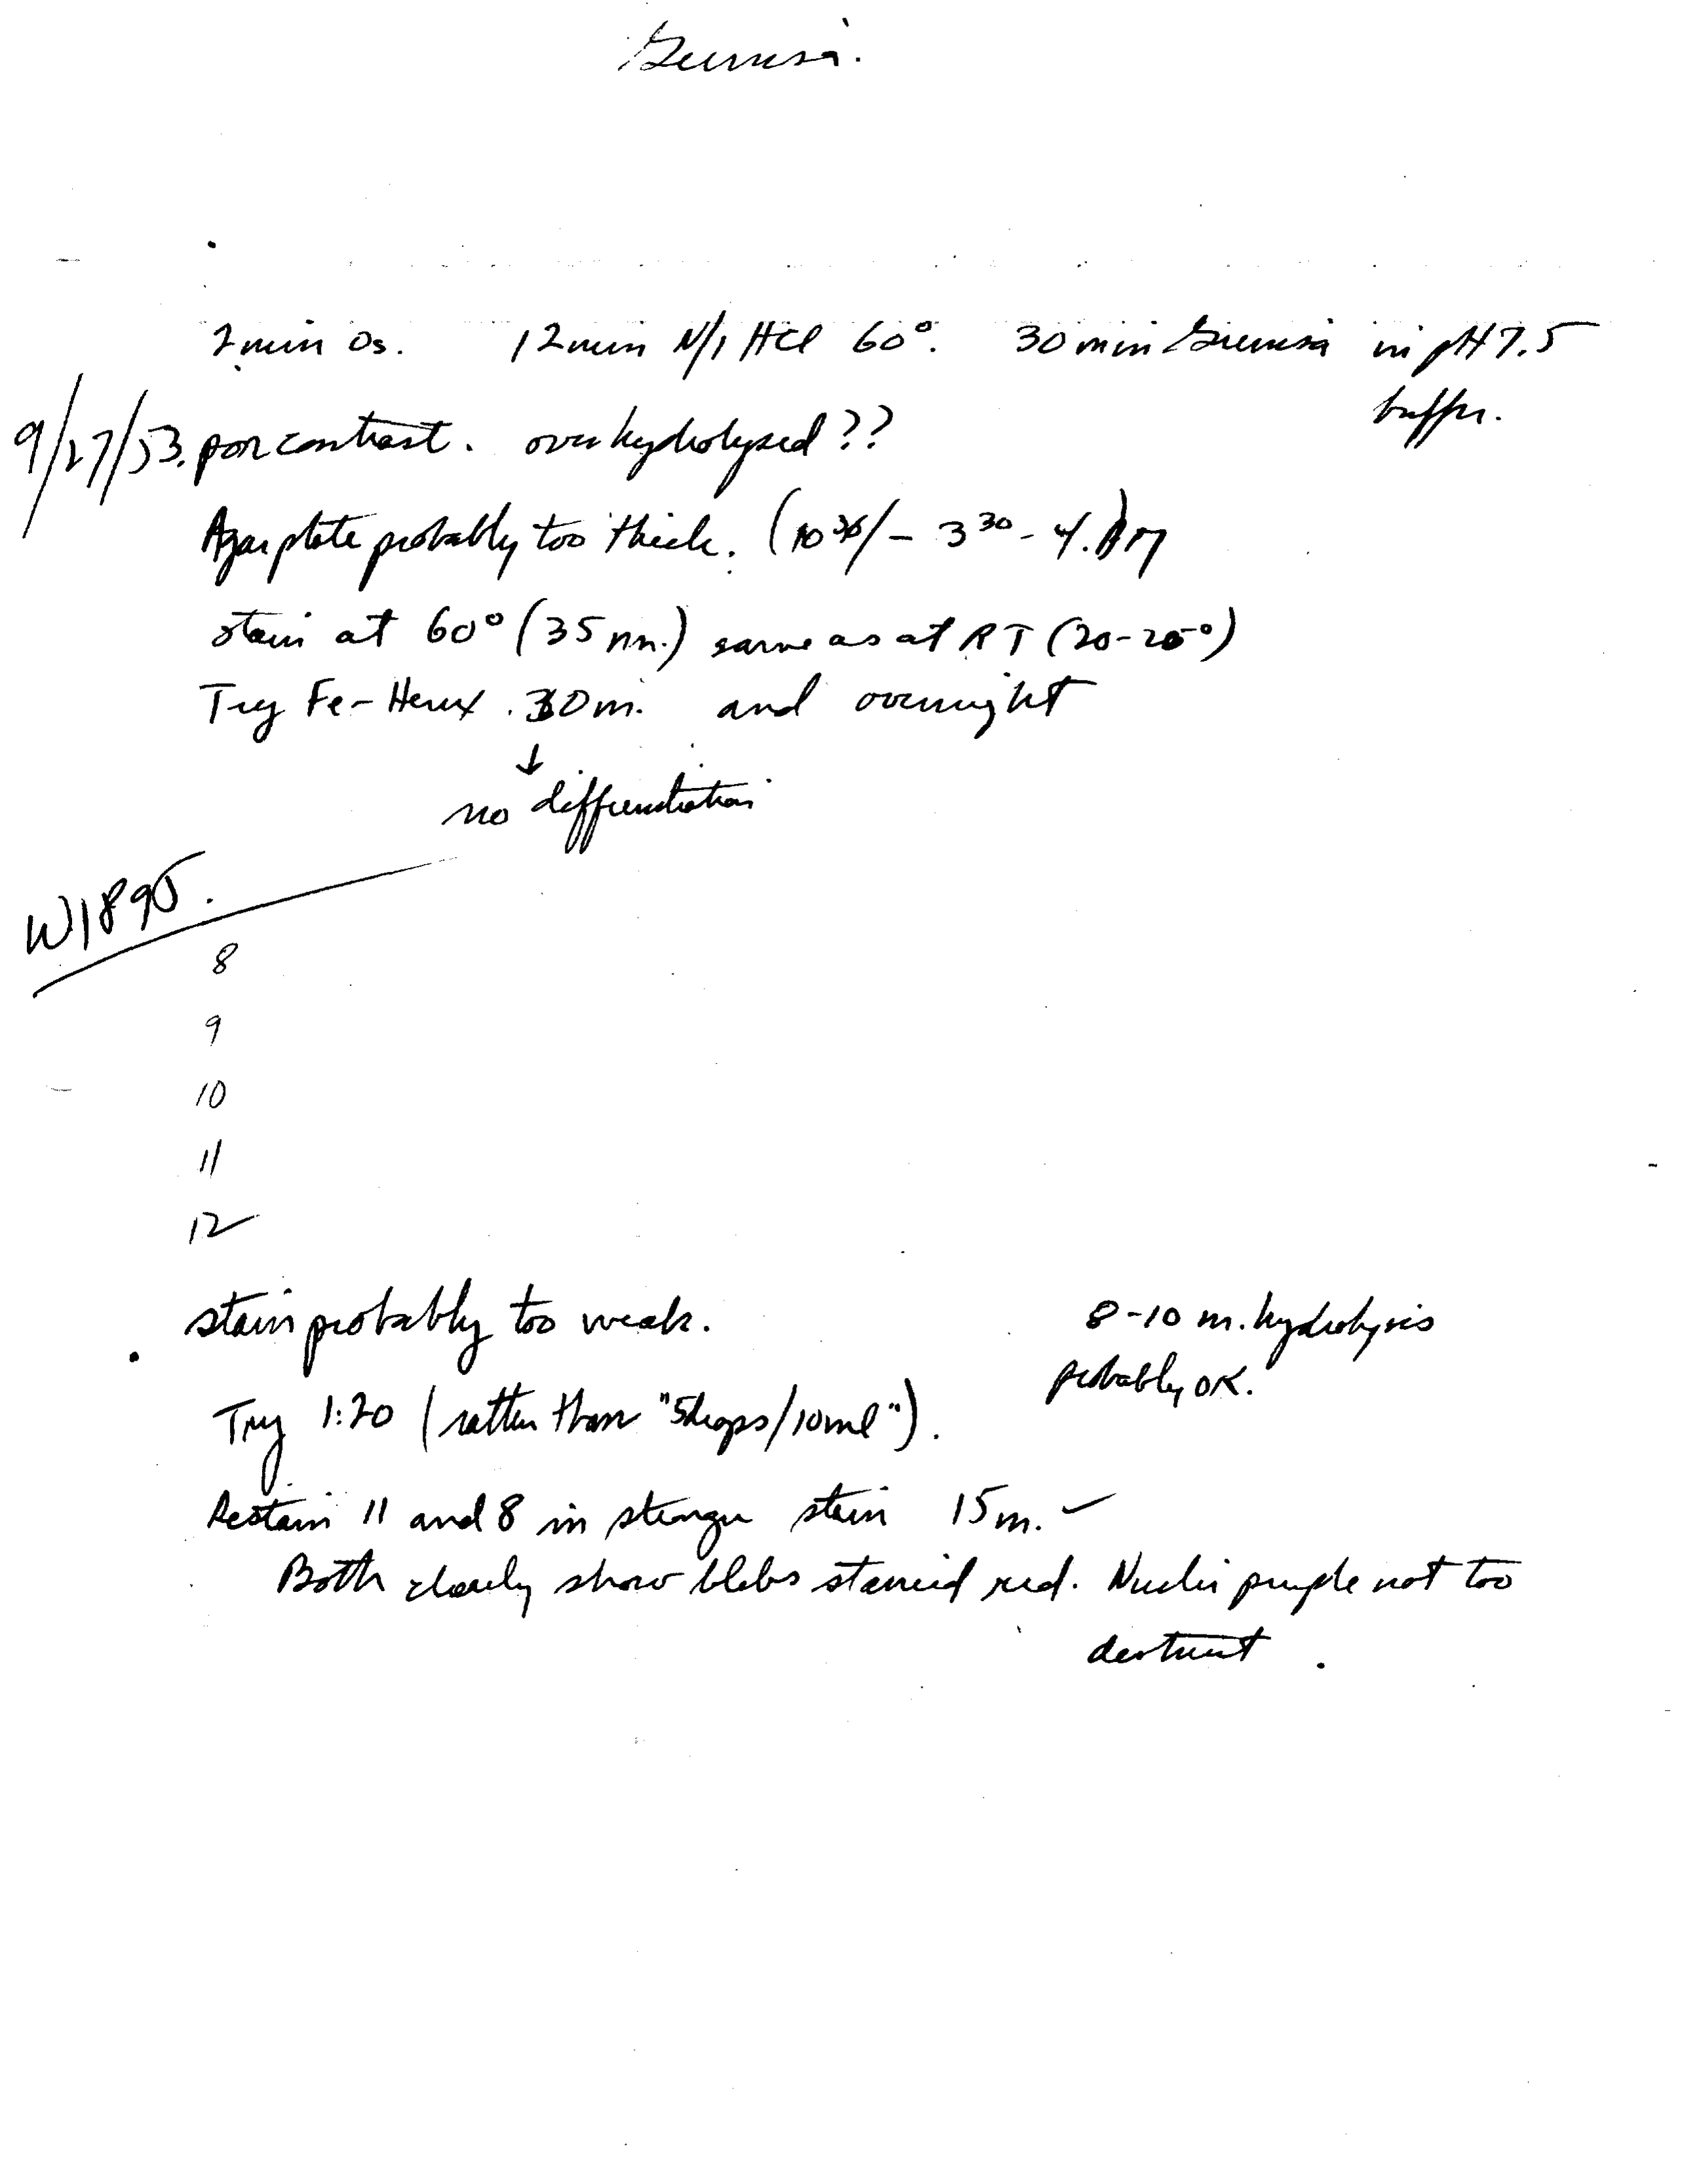 Giemsa.
2 min Os. 12 min N/1 HCl 60°. 30 min Giemsa in pH 7.5
buffer.
9/27/53. poor contrast. overhydrolysed??
Agar plate probably too thick. (10 30/ - 3 30 - 4. PM
stain at 60° (35 mn.) same as at RT (20-25°)
Try Fe-Hemx. 30 m. and overnight
↓
no differentiation
W1895.
8
9
10
11
12
stain probably too weak.
8-10 m. hydrolysis
probably OK.
Try 1:20 (rather than "5 drops/10 ml").
Restain 11 and 8 in stronger stain 15 m. ✓
Both clearly show blebs stained red. Nuclei purple not too
distinct.